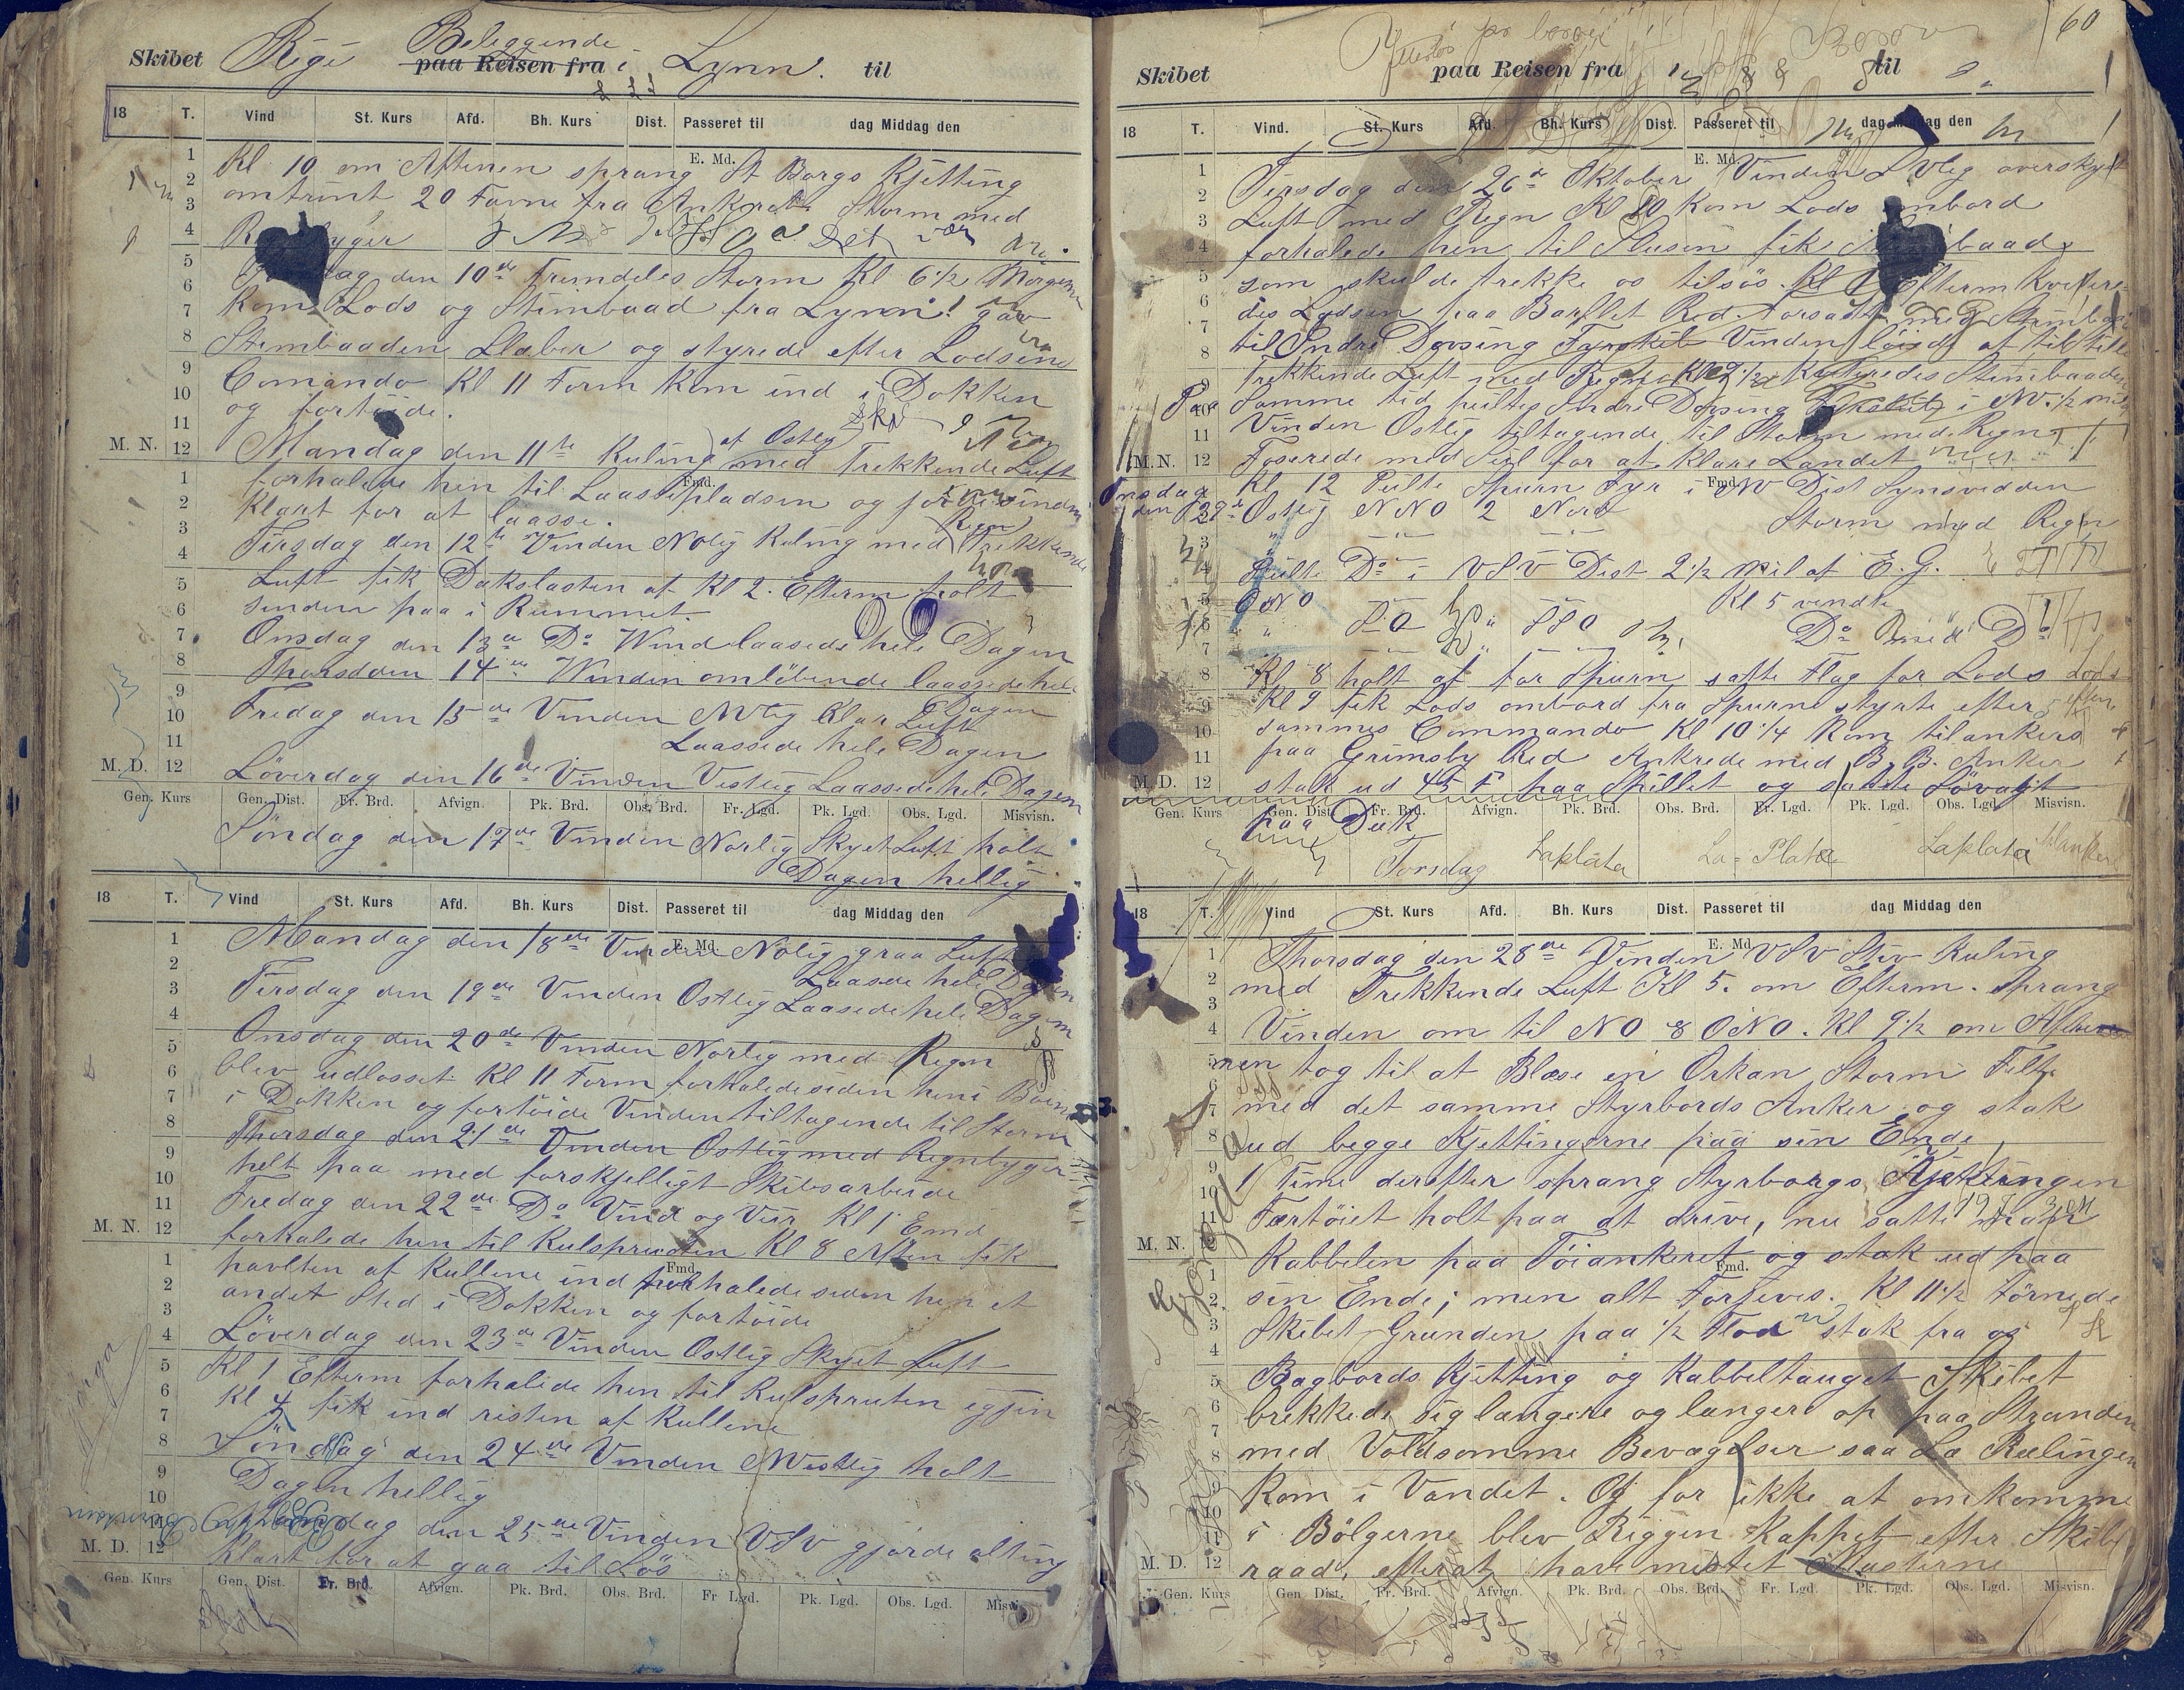 Skibet Rigi Beleggende paa Reisen fra i Lynn. til
18 T. Vind St. Kurs Afd. Bh. Kurs Dist. Passeret til dag Middag den
E. Md.
Kl 10 om Aftenen sprang St Borgs Kjetting
omtrint 20 Favne fra Ankeret Storm med
dag den 10de Fremdeles Storm Kl 6 1/2 Morgen
kom Lods og Stimbaad fra Lynn! gav
Stimbaaden Slæber og styrede efter Lodsens
Comando Kl 11 Form kom ind i Dokken
og fortöide.
Mandag den 11te Kuling af Ostlig med Trekkende Luft
forhalede hen til Laassepladsen og
klart for at laasse.
Tirsdag den 12te Vinden Nolig Kuling med Regn Trekkende
Luft fik Dækslasten af Kl 2. Efterm holt
sinden paa i Rummet.
Onsdag den 13de Do Wind laasede hele Dagen
Thorsdden 14de Winden omlöbende laassede hele Dagen
Fredag den 15de Vinden NVlig Klar Luft
Laassede hele Dagen
M. D. 12 Löverdag den 16de Vinden Vestlig Laassede hele Dagen
Gen. Kurs Gen. Dist. Fr. Brd. Afvign. Pk. Brd. Obs. Brd. Fr. Lgd. Pk. Lgd. Obs. Lgd. Misvisn.
Söndag den 17de Vinden Norlig Skyet Luft holt
Dagen hellig
18 T. Vind St. Kurs Afd. Bh. Kurs Dist. Passeret til dag Middag den
E. Md.
Mandag den 18de Vinden Nolig graa Luft
Laasede hele Dagen
Tirsdag den 19de Vinden Ostlig Laasede hele Dagen
Onsdag den 20de Vinden Norlig med Regn
blev udlosset Kl 11 Form forhalede siden hen i
i Dokken og fortöide Vinden tiltagende til Storm
Thorsdag den 21de Vinden Ostlig med Regnbyger
helt paa med forskjelligt Skibsarbeide
Fredag den 22de Do Vind og Veir Kl 1 Emd
forhalede hen til Kulspruten Kl 8 Aften fik
havlten af Kullene ind forhalede siden hen et
andet Sted i Dokken og fortöide
Löverdag den 23de Vinden Ostlig Skyet Luft
Kl 1 Efterm forhalede hen til Kulspruten igjen
Kl 4 fik ind resten af Kullene
Söndag den 24de Vinden NVestlig holt
Dagen hellig
dag den 25de Vinden VSV gjorde alting
M. D. 12 klart for at gaa til Sös
Gen. Kurs Gen. Dist. Fr. Brd. Afvign. Pk. Brd. Obs. Brd. Fr Lgd. Pk. Lgd. Obs. Lgd. Misvisn.
60
Skibet paa Reisen fra til
18 T. Vind. St. Kurs Afd. Bh. Kurs Dist. Passeret til dag Middag den
E. Md.
Tirsdag den 26de Oktober Vinden overskyet
Luft med Regn Kl 10 kom Lods ombord
forhalede hen til Slusen fik baad
som skulde trekke os tilsös. Kl Efterm kvitere-
des Lodsen paa Red. Forsadt med Stimbaad
til Indre Dovsing Fyrskib Vinden löiede af til Stille
Trekkende Luft med Regn Kl 9 1/2 Kviteredes Stimbaaden
Samme tid peiltes Indre Dovsing Fyrskib i NV. 1/2 mil
Vinden Ostlig tiltagende til Storm med Regn
M. N. 12 Foserede med Seil for at klare Landet
Kl 12 Peilte Spurn Fyr i NV Dist Synsvidden
Onsdag den Ostlig NNO 2 Nord Storm med Regn
Peilte Do i VSV Dist 2 1/2 Mil af E. G.
ONO Kl 5 vendte
SO SSO Do med Do
Kl 8 holt af for Spurn satte Flag for Lods
Kl 9 fik Lods ombord fra Spurn styrte efter
sammes Commando Kl 10 1/4 kom tilankers
paa Grimsby Red Ankrede med B. B. Anker
M. D. 12 stak ud 45 F paa Spillet og satte Sövagt
Gen. Kurs Gen. Dist. Fr. Brd. Afvign. Pk. Brd. Obs. Brd. Fr. Lgd. Pk. Lgd. Obs. Lgd. Misvisn.
paa Dæk
Torsdag Laplata La-Plata Laplata
18 T. Vind St. Kurs Afd. Bh. Kurs Dist. Passeret til dag Middag den
E. Md
Thorsdag den 28de Vinden VSV Stiv Kuling
med Trekkende Luft Kl 5. om Efterm. sprang
Vinden om til NO & ONO. Kl 9 1/2 om Afte
nen tog til at Blæse en Orkan Storm Felte
med det samme Styrbords Anker og stak
ud begge Kjettingerne paa sin Ende
1 Time derefter sprang Styrborgs Kjettingen
Færtöiet holt paa at drive, nu satte man
M. N. Kabbelen paa Töiankeret og stak ud paa
Fmd.
sin Ende; men alt Forjeves. Kl 11 1/2 törnede
Skibet Grunden paa 1/2 Flod stak fra os
Bagbords Kjetting og Kabbeltauget Skibet
brekkede sig længere og længere op paa Stranden
med Voldsomme Bevægelser saa La Rælingen
kom i Vandet. Og for ikke at omkomme
i Bölgerne blev Riggen Kappet efter Skibs
M. D. 12 raad, efterat have mistet Masterne
Gen. Kurs Gen Dist. Fr. Brd. Afvign. Pk. Brd. Obs. Brd. Fr. Lgd. Pk. Lgd. Obs. Lgd. Misvisn.